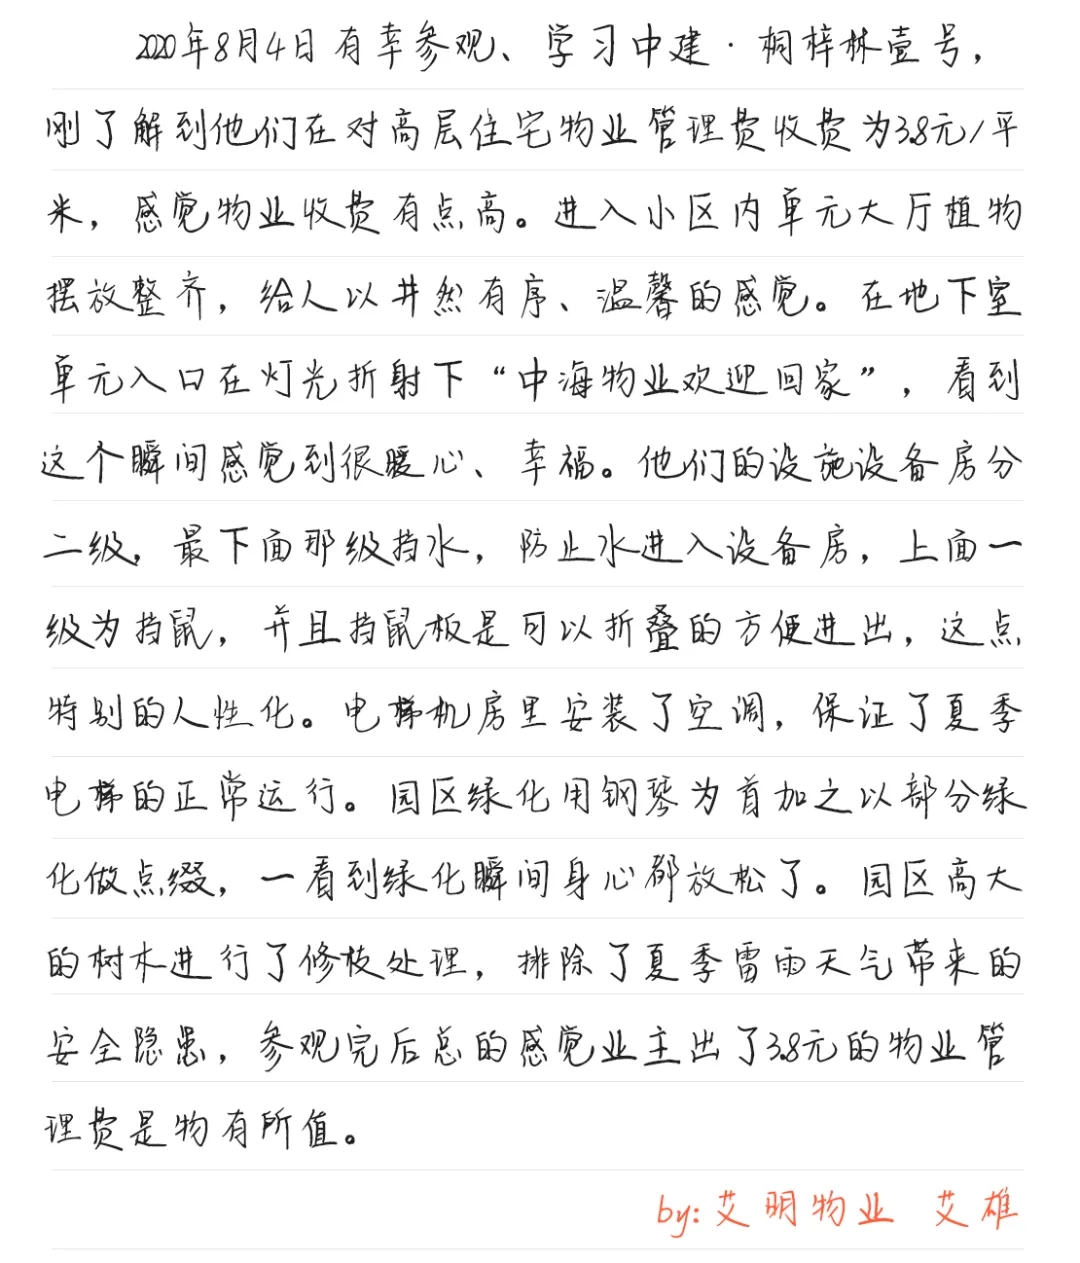 2020年8月4日有幸参观、学习中建·桐梓林壹号，
刚了解到他们在对高层住宅物业管理费收费为3.8元/平
米，感觉物业收费有点高。进入小区内单元大厅植物
摆放整齐，给人以井然有序、温馨的感觉。在地下室
单元入口在灯光折射下“中海物业欢迎回家”，看到
这个瞬间感觉到很暖心、幸福。他们的设施设备房分
二级，最下面那级挡水，防止水进入设备房，上面一
级为挡鼠，并且挡鼠板是可以折叠的方便进出，这点
特别的人性化。电梯机房里安装了空调，保证了夏季
电梯的正常运行。园区绿化用钢琴为首加之以部分绿
化做点缀，一看到绿化瞬间身心都放松了。园区高大
的树木进行了修枝处理，排除了夏季雷雨天气带来的
安全隐患，参观完后总的感觉业主出了3.8元的物业管
理费是物有所值。
by:艾明物业 艾雄